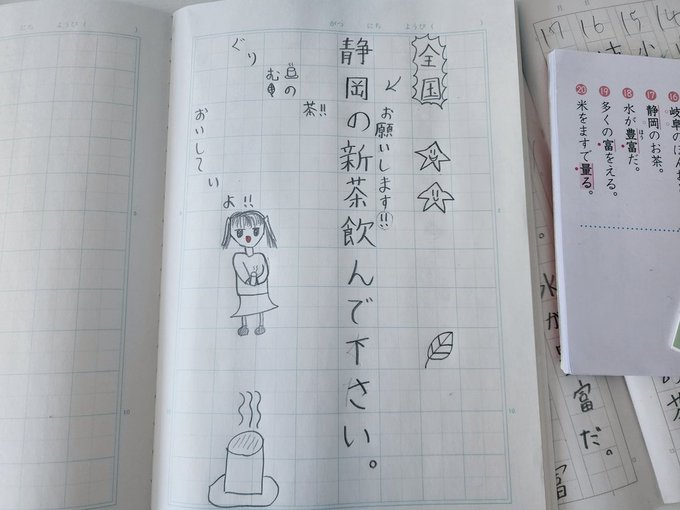 にち ようび ( )
がつ にち ようび ( )
全国
お願いします!!
静岡の新茶飲んで下さい。
茶!!
の
む
ぐり
おいしてい
よ!!
10
10
17 16 15 14
⑯ 岐阜の
⑰ 静岡のお茶。
⑱ 水が豊富だ。
ほう
⑲ 多くの富をえる。
⑳ 米をますで量る。
富だ。
富